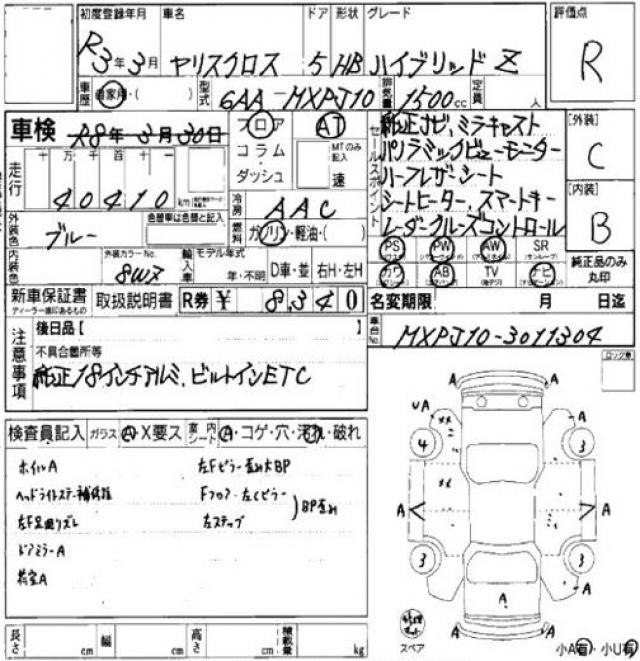 初度登録年月 車名 ドア 形状 グレード 評価点
R3年3月 ヤリスクロス 5 HB ハイブリッド Z R
車歴 自家用・( ) 型式 6AA-MXPJ10 排気量 1500cc 定員 人
車検 R8年3月30日 フロア AT
純正ナビ、ミラキャスト
コラム・ MTのみ記入
パノラミックビューモニター
ダッシュ 速
ハーフレザーシート
走行 十万千百十一
40410 km
シートヒーター、スマートキー
レーダークルーズコントロール
セールスポイント
[外装] C
[内装] B
純正品のみ丸印
冷房 AAC
外装色 ブルー 色替車は色替と記入
燃料 ガソリン・軽油・( )
PS PW AW SR
カワ AB TV ナビ
内装色 外装カラーNo. 8W7 輸入車 モデル年式 年・不明 D車・並 右H・左H
新車保証書 取扱説明書 R券 ¥ 8,340
ディーラー捺印あるもの
名変期限 月 日迄
車台No. MXPJ10-3011304
注意事項
後日品【 】
不具合箇所等
純正18インチアルミ、ビルトインETC
ロック車
検査員記入 ガラス A・X要ス 室内シート A・コゲ・穴・汚れ・破れ
ホイルA 左Fピラー歪み大BP
ヘッドライトステー補修跡 Fフロア・左Cピラー
BP歪み
左F足廻りズレ 左ステップ
ドアミラーA
荷室A
A
UA A
4 3
A A
3 3
A A
A
A
スペア
小A有・小U有
長さ cm 幅 cm 高さ cm 積載量 kg